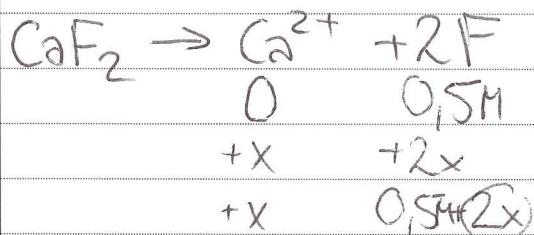 CaF₂ → Ca²⁺ + 2F
0 0,5M
+x +2x
+x 0,5M+(2x)